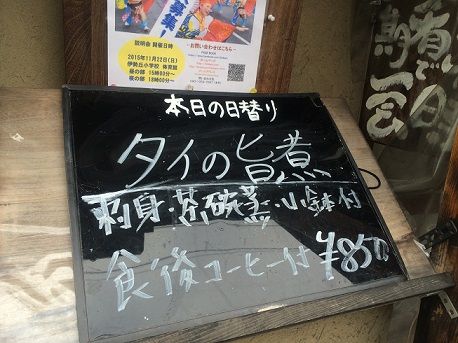 募集!
説明会 開催日時
2015年11月22日(日)
伊勢丘小学校 体育館
昼の部 15時00分~
夜の部 18時00分~
お問い合わせはこちら
本日の日替り
タイの旨煮
刺身・茶碗蒸・小鉢付
食後コーヒー付 ¥850
一会